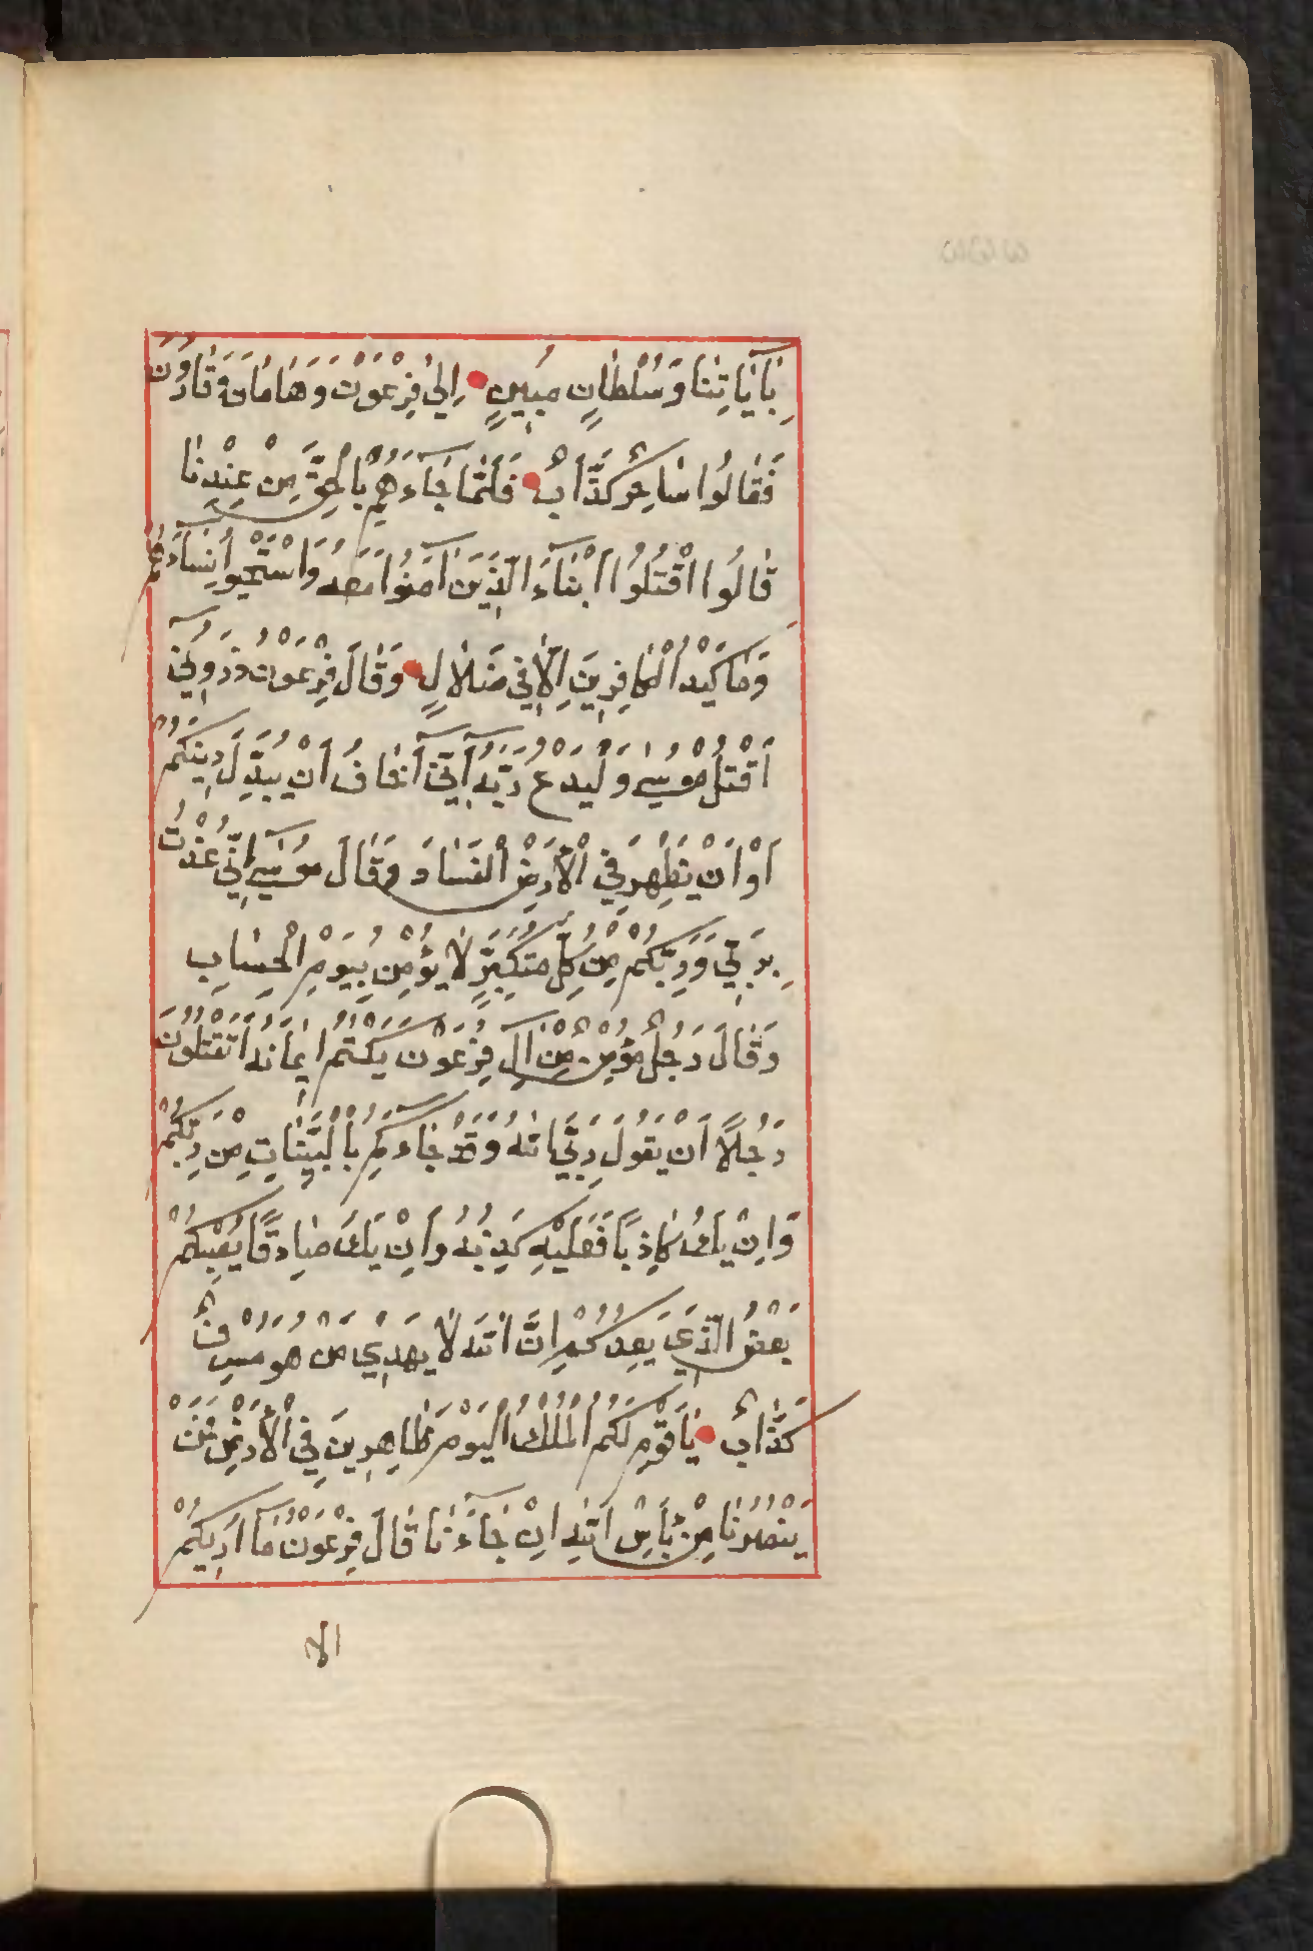 بِاٰيَاتِنَا وَسُلْطَانٍ مُبِينٍ اِلٰى فِرْعَوْنَ وَهَامَانَ وَقَارُونَ
فَقَالُوا سَاحِرٌ كَذَّابٌ فَلَمَّا جَاءَهُمْ بِالْحَقِّ مِنْ عِنْدِنَا
قَالُوا اقْتُلُوا اَبْنَاءَ الَّذِينَ اٰمَنُوا مَعَهُ وَاسْتَحْيُوا نِسَاءَهُمْ
وَمَا كَيْدُ الْكَافِرِينَ اِلَّا فِي ضَلَالٍ وَقَالَ فِرْعَوْنُ ذَرُونِي
اَقْتُلْ مُوسٰى وَلْيَدْعُ رَبَّهُ اِنِّي اَخَافُ اَنْ يُبَدِّلَ دِينَكُمْ
اَوْ اَنْ يُظْهِرَ فِي الْاَرْضِ الْفَسَادَ وَقَالَ مُوسٰى اِنِّي عُذْتُ
بِرَبِّي وَرَبِّكُمْ مِنْ كُلِّ مُتَكَبِّرٍ لَا يُؤْمِنُ بِيَوْمِ الْحِسَابِ
وَقَالَ رَجُلٌ مُؤْمِنٌ مِنْ اٰلِ فِرْعَوْنَ يَكْتُمُ اِيمَانَهُ اَتَقْتُلُونَ
رَجُلًا اَنْ يَقُولَ رَبِّيَ اللهُ وَقَدْ جَاءَكُمْ بِالْبَيِّنَاتِ مِنْ رَبِّكُمْ
وَاِنْ يَكُ كَاذِبًا فَعَلَيْهِ كَذِبُهُ وَاِنْ يَكُ صَادِقًا يُصِبْكُمْ
بَعْضُ الَّذِي يَعِدُكُمْ اِنَّ اللهَ لَا يَهْدِي مَنْ هُوَ مُسْرِفٌ
كَذَّابٌ يَا قَوْمِ لَكُمُ الْمُلْكُ الْيَوْمَ ظَاهِرِينَ فِي الْاَرْضِ فَمَنْ
يَنْصُرُنَا مِنْ بَأْسِ اللهِ اِنْ جَاءَنَا قَالَ فِرْعَوْنُ مَا اُرِيكُمْ
الا